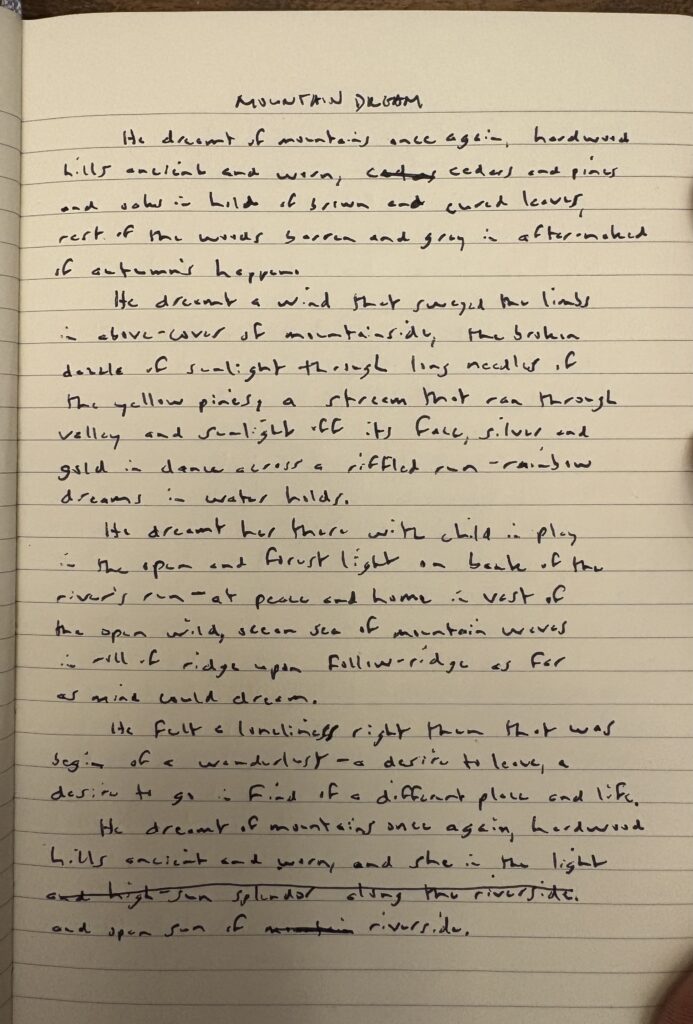 MOUNTAIN DREAM
He dreamt of mountains once again, hardwood
hills ancient and worn, cedars and pines
and oaks in hold of brown and cured leaves,
rest of the woods barren and gray in after-naked
of autumn's happen.
He dreamt a wind that swayed the limbs
in above-cover of mountainside, the broken
dazzle of sunlight through long needles of
the yellow pines, a stream that ran through
valley and sunlight off its face, silver and
gold in dance across a riffled run - rainbow
dreams in water holds.
He dreamt her there with child in play
in the open and forest light on bank of the
river's run - at peace and home in vast of
the open wild, ocean sea of mountain waves
in roll of ridge upon follow-ridge as far
as mind could dream.
He felt a loneliness right then that was
begin of a wanderlust - a desire to leave, a
desire to go in find of a different place and life.
He dreamt of mountains once again, hardwood
hills ancient and worn, and she in the light
and high-sun splendor along the riverside.
and open sun of mountain riverside.